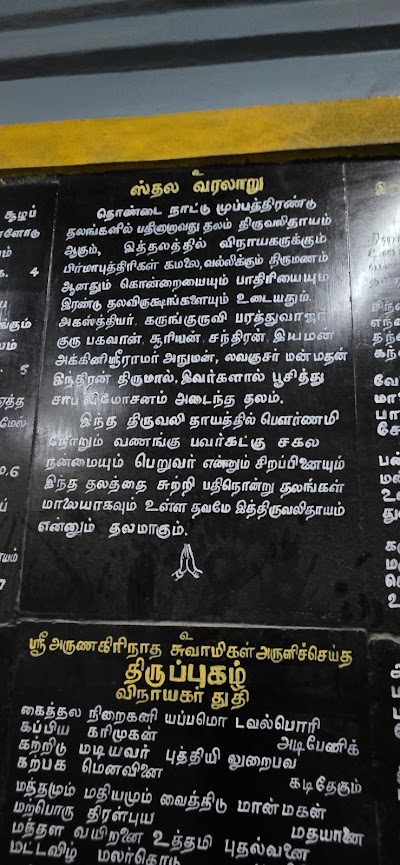 உ
ஸ்தல வரலாறு
தொண்டை நாட்டு முப்பத்திரண்டு
தலங்களில் பதினாறாவது தலம் திருவலிதாயம்
ஆகும், இத்தலத்தில் விநாயகருக்கும்
பிர்மாபுத்திரிகள் கமலை, வல்லிக்கும் திருமணம்
ஆனதும் கொன்றையையும் பாதிரியையும்
இரண்டு தலவிருக்ஷங்களையும் உடையதும்.
அகஸ்த்தியர், கருங்குருவி பரத்துவாஜர்
குரு பகவான், சூரியன், சந்திரன், இயமன்
அக்கினி, ஸ்ரீராமர் அநுமன், லவகுசர் மன்மதன்
இந்திரன் திருமால், இவர்களால் பூசித்து
சாப விமோசனம் அடைந்த தலம்.
இந்த திருவலி தாயத்தில் பௌர்ணமி
தோறும் வணங்கு பவர்கட்கு சகல
நன்மையும் பெறுவர் என்னும் சிறப்பினையும்
இந்த தலத்தை சுற்றி பதினொன்று தலங்கள்
மாலையாகவும் உள்ள தவமே இத்திருவலிதாயம்
என்னும் தலமாகும்.
உ
ஸ்ரீ அருணகிரிநாத சுவாமிகள் அருளிச்செய்த
திருப்புகழ்
விநாயகர் துதி
கைத்தல நிறைகனி யப்பமொ டவல்பொரி
கப்பிய கரிமுகன் அடிபேணிக்
கற்றிடு மடியவர் புத்தியி லுறைபவ
கற்பக மெனவினை கடிதேகும்
மத்தமும் மதியமும் வைத்திடு மான்மகன்
மற்பொரு திரள்புய மதயானை
மத்தள வயிறனை உத்தமி புதல்வனை
மட்டவிழ் மலர்கொடு